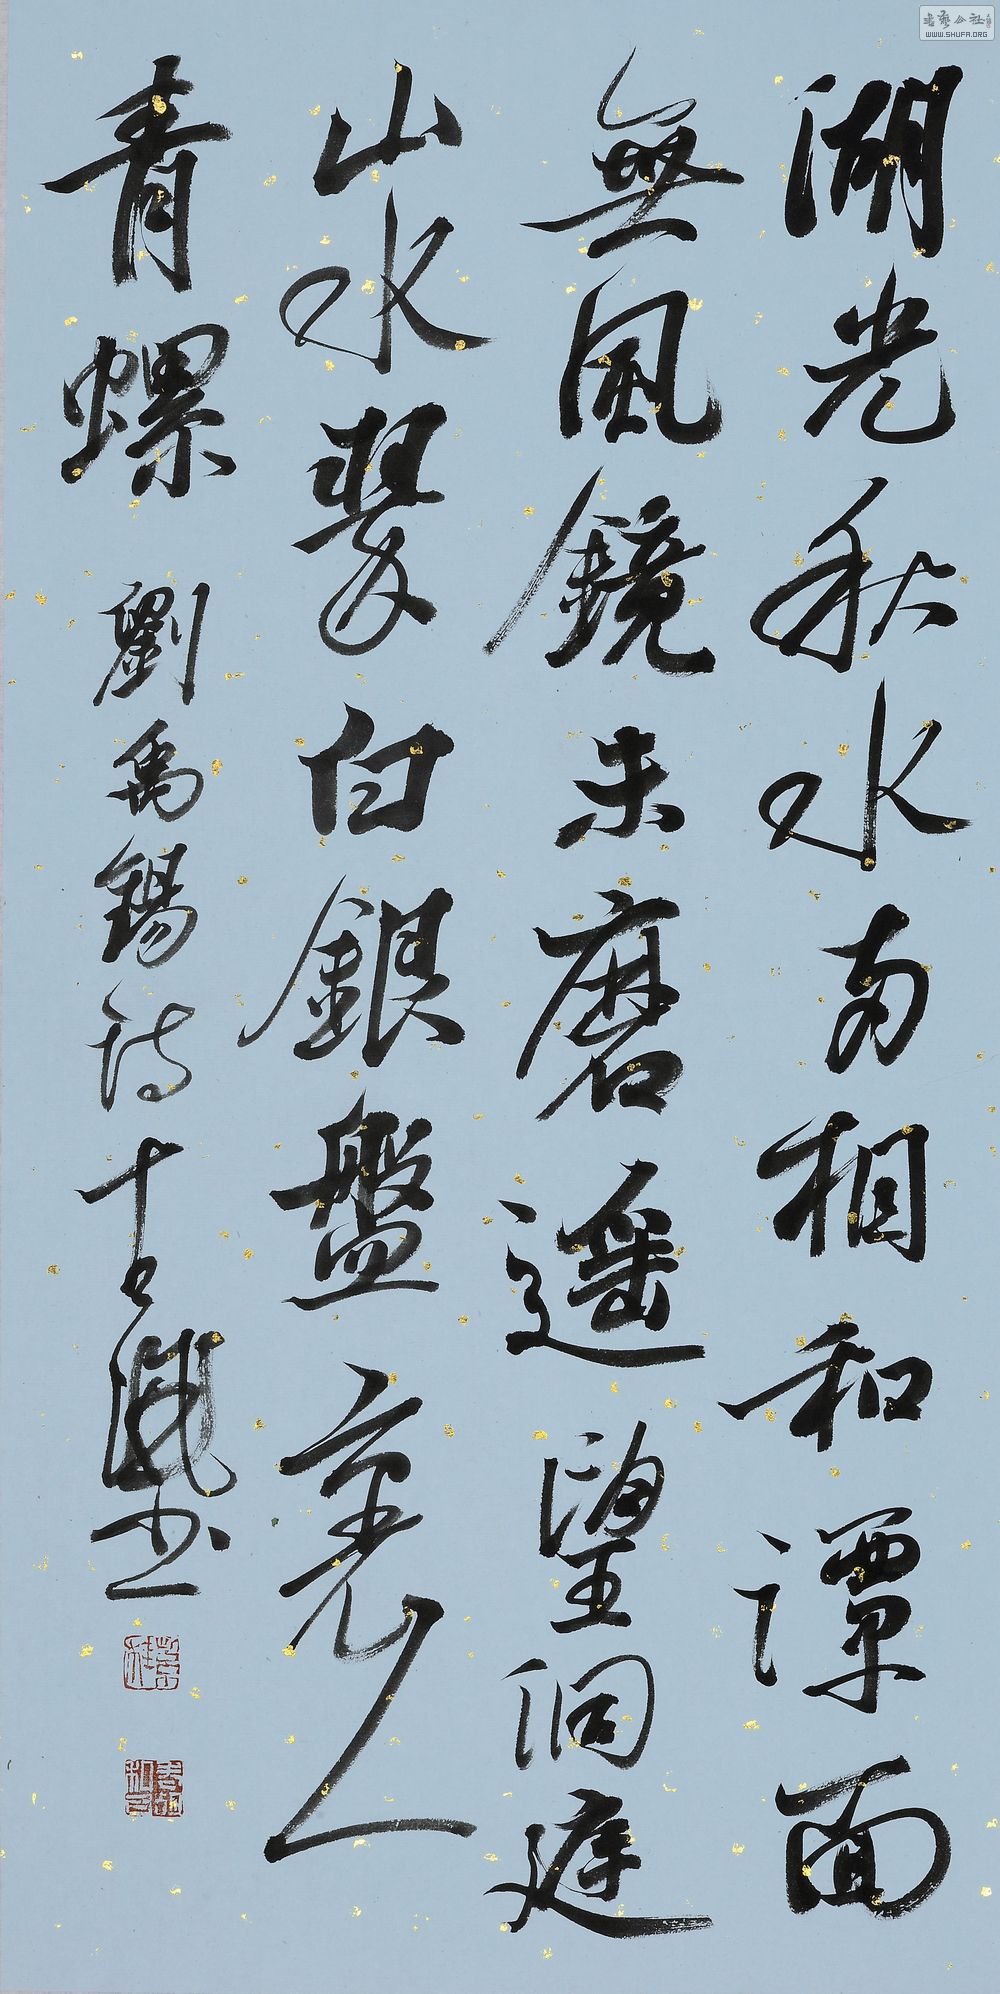 湖光秋水兩相和潭面
無風鏡未磨遙望洞庭
山水翠白銀盤裏一
青螺 劉禹錫詩 書
書藝公社
WWW.SHUFA.ORG